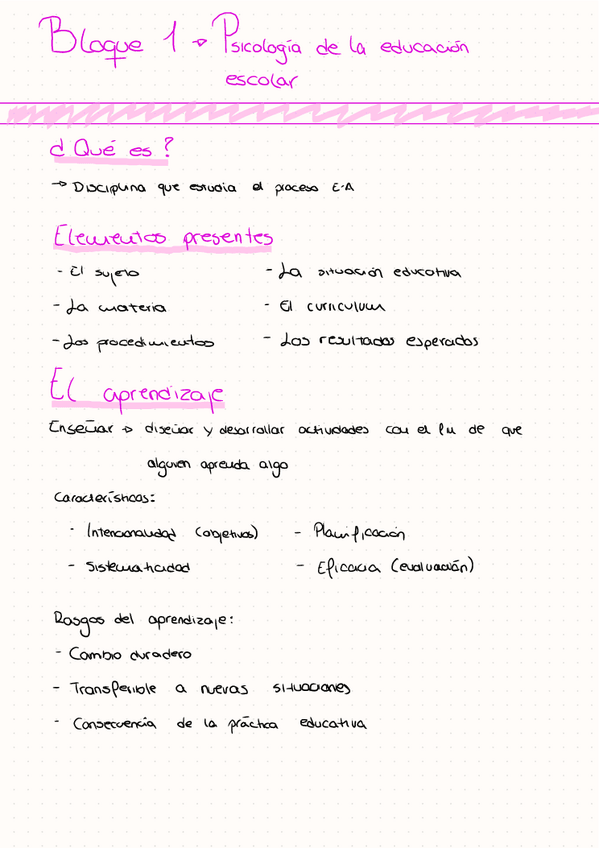 Bloque 1 → Psicología de la educación
escolar
¿Qué es?
→ Disciplina que estudia el proceso E-A
Elementos presentes
- El sujeto
- La situación educativa
- La materia
- El curriculum
- Los procedimientos
- Los resultados esperados
El aprendizaje
Enseñar → diseñar y desarrollar actividades con el fin de que
alguien aprenda algo
Características:
- Intencionalidad (objetivos)
- Planificación
- Sistematicidad
- Eficacia (evaluación)
Rasgos del aprendizaje:
- Cambio duradero
- Transferible a nuevas situaciones
- Consecuencia de la práctica educativa